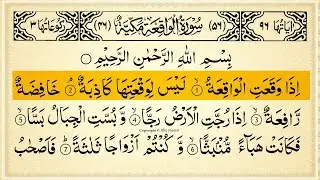 اٰیَاتُهَا ٩٦ (٥٦) سُوْرَةُ الْوَاقِعَةِ مَكِّیَّةٌ (٤٦) رُكُوْعَاتُهَا ٣
بِسْمِ اللّٰهِ الرَّحْمٰنِ الرَّحِیْمِ
اِذَا وَقَعَتِ الْوَاقِعَةُ ۙ﴿1﴾ لَیْسَ لِوَقْعَتِهَا كَاذِبَةٌ ۘ﴿2﴾ خَافِضَةٌ
رَّافِعَةٌ ۙ﴿3﴾ اِذَا رُجَّتِ الْاَرْضُ رَجًّا ۙ﴿4﴾ وَّ بُسَّتِ الْجِبَالُ بَسًّا ۙ﴿5﴾
فَكَانَتْ هَبَآءً مُّنْۢبَثًّا ۙ﴿6﴾ وَّ كُنْتُمْ اَزْوَاجًا ثَلٰثَةً ؕ﴿7﴾ فَاَصْحٰبُ